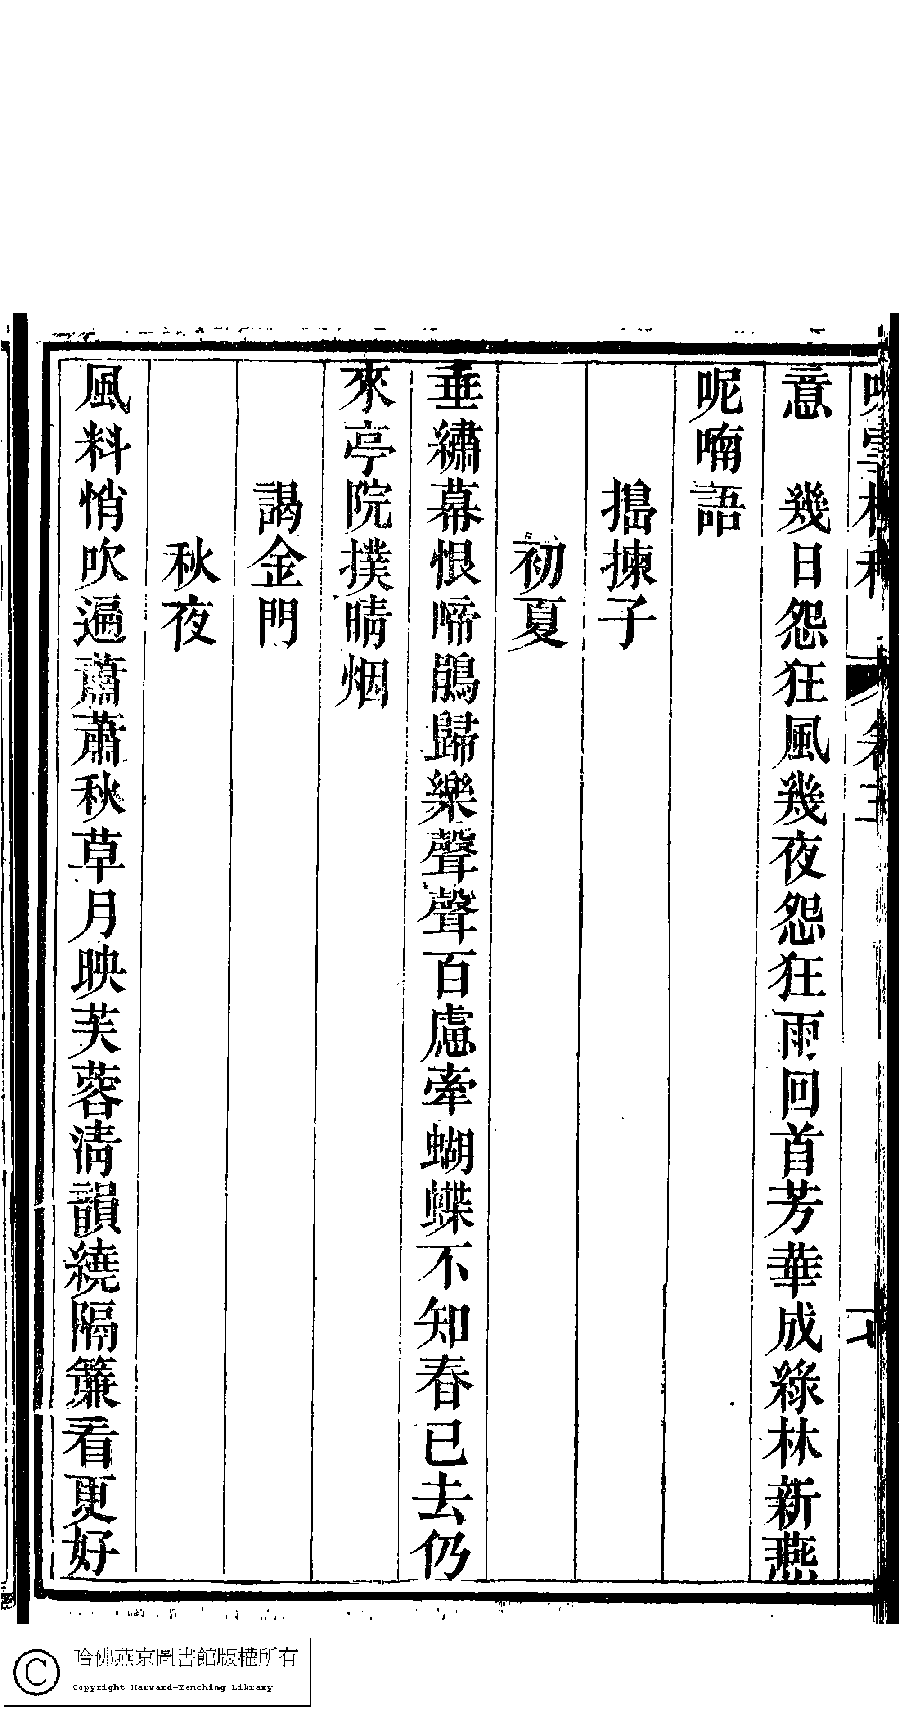 意　幾日怨狂風幾夜怨狂雨回首芳華成綠林新燕
呢喃語
搗揀子
初夏
垂繡幕恨啼鵑歸樂聲聲百慮牽蝴蝶不知春已去仍
來亭院撲晴烟
謁金門
秋夜
風料悄吹遍蕭蕭秋草月映芙蓉淸韻繞隔簾看更好
哈佛燕京圖書館版權所有
Copyright Harvard-Yenching Library